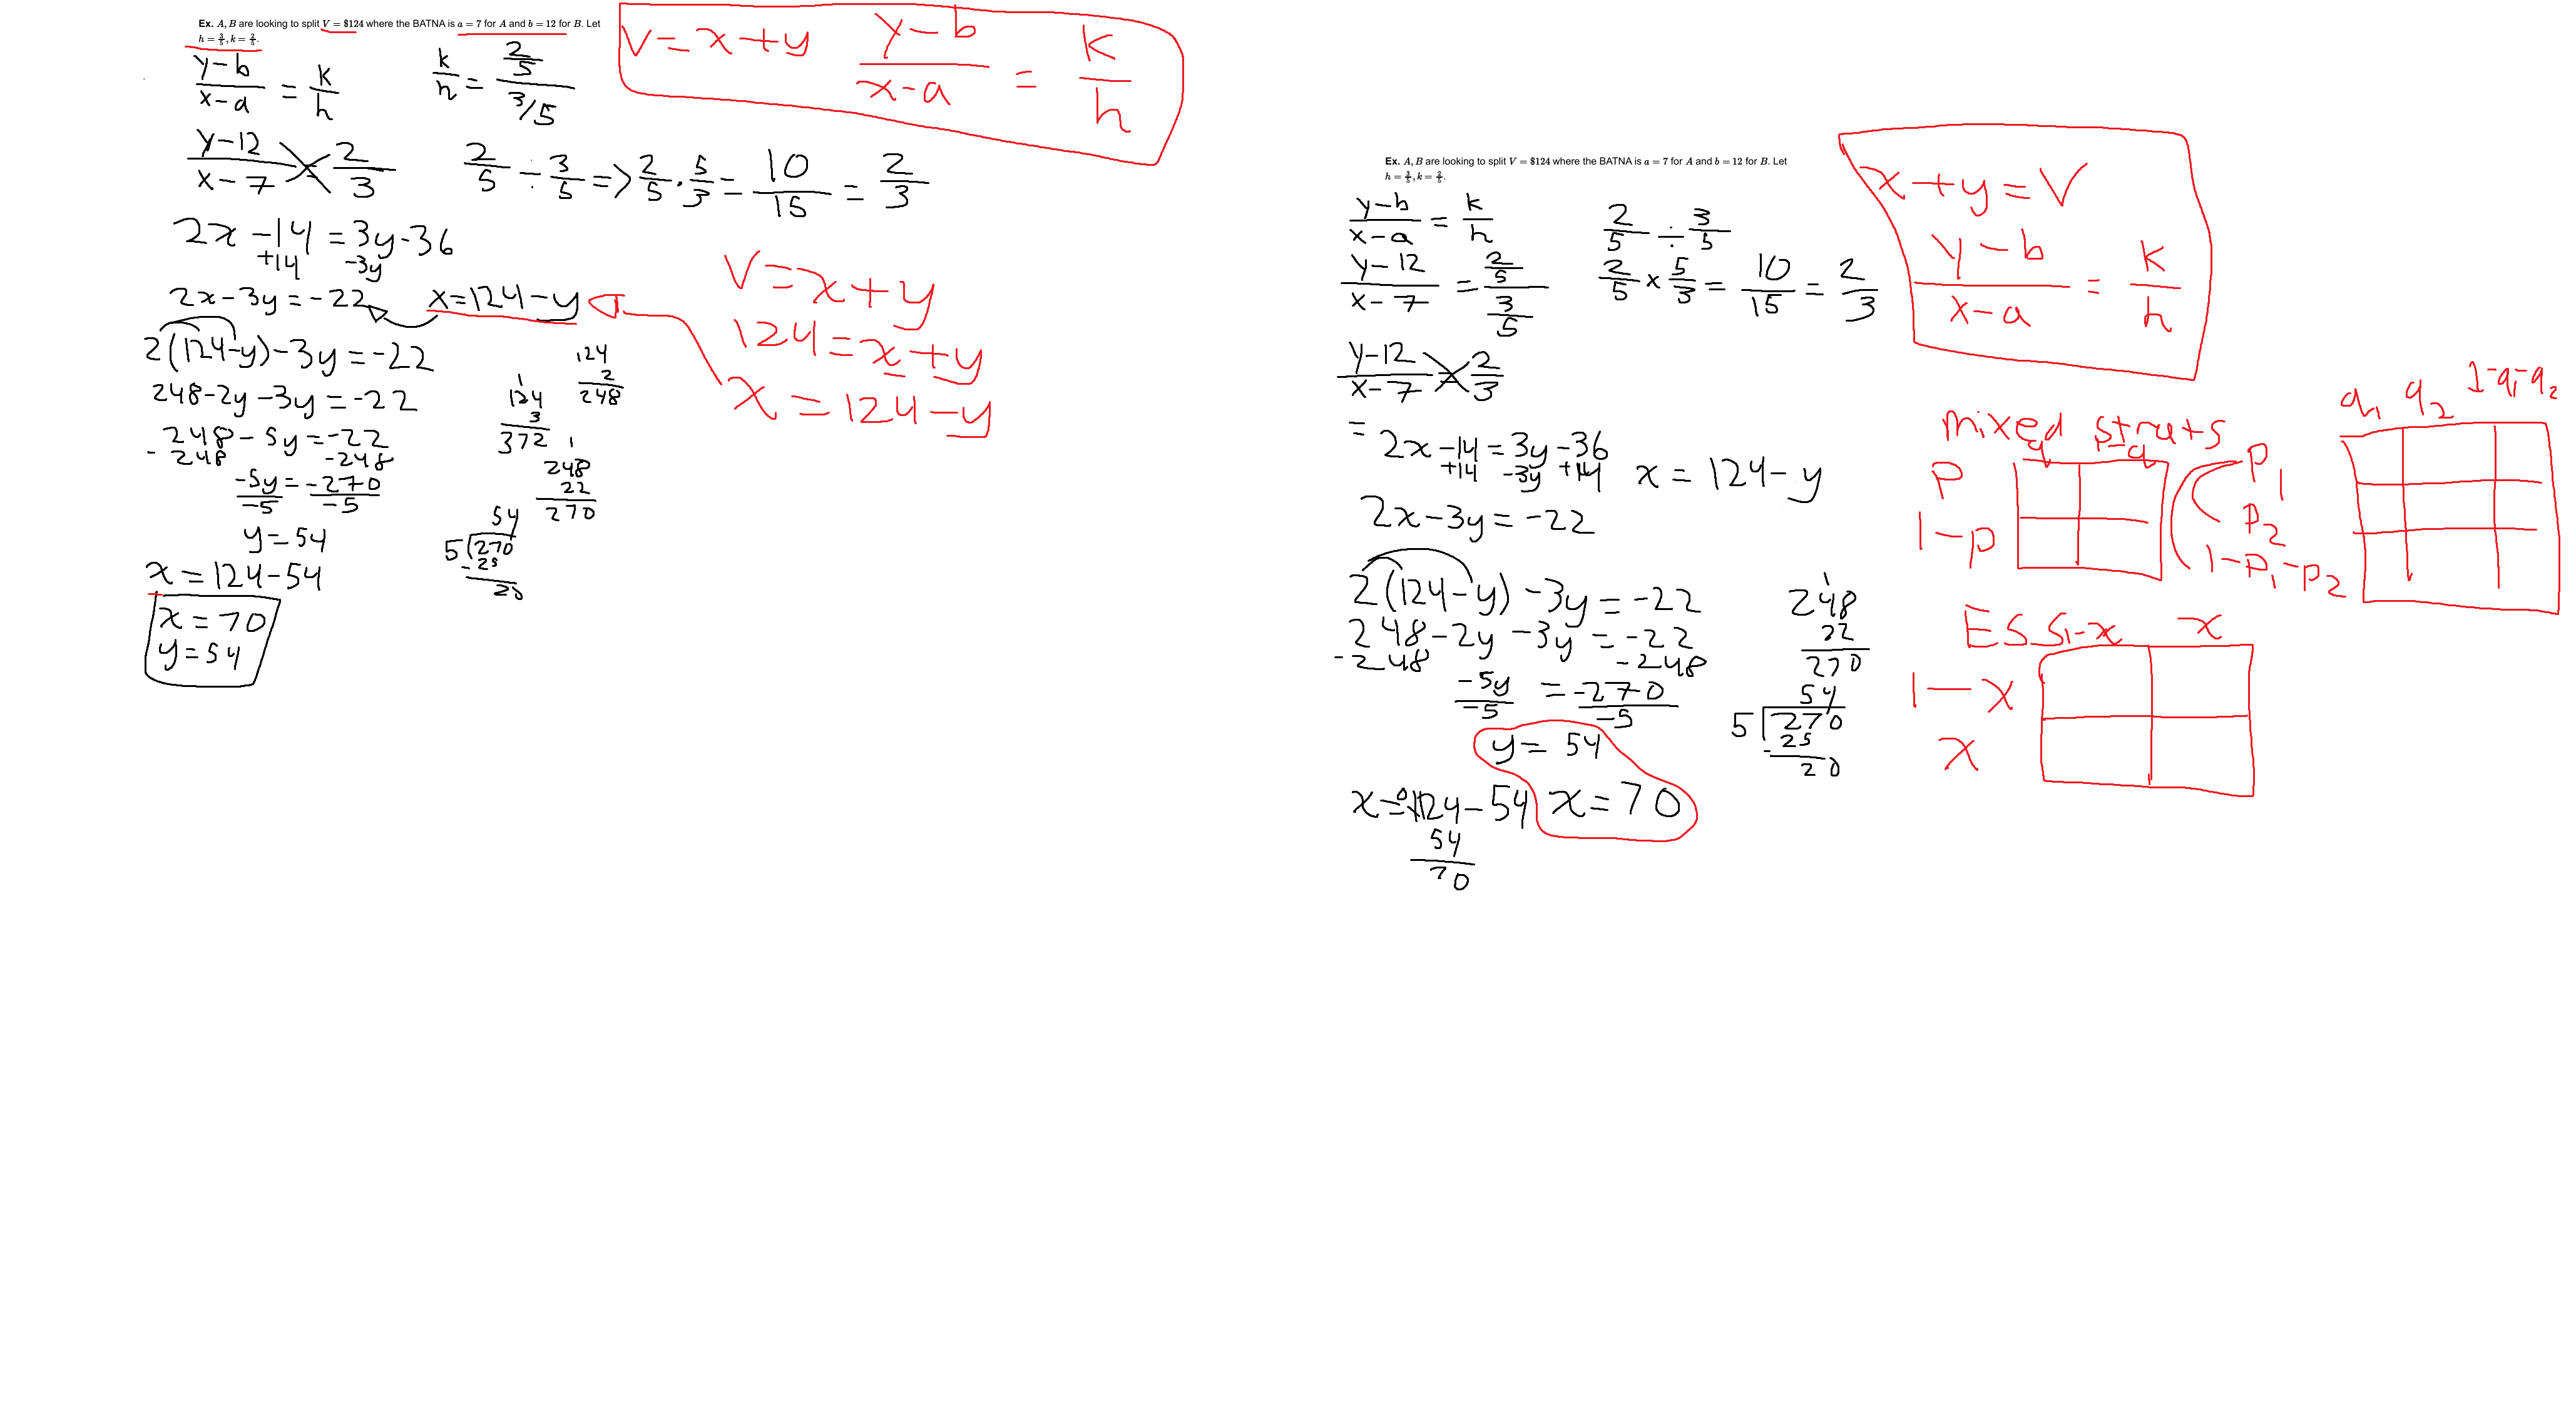 Ex. A, B are looking to split V = $124 where the BATNA is a = 7 for A and b = 12 for B. Let
h = 3/5, k = 2/5.
V = x + y (y-b)/(x-a) = k/h
(y-b)/(x-a) = k/h
k/h = (2/5)/(3/5)
(y-12)/(x-7) 2/3
2/5 ÷ 3/5 => 2/5 · 5/3 = 10/15 = 2/3
2x - 14 = 3y - 36
+14 -3y
2x - 3y = -22
x = 124 - y
V = x + y
124 = x + y
x = 124 - y
2(124-y) - 3y = -22
248 - 2y - 3y = -22
248 - 5y = -22
-248 -248
-5y = -270
-5 -5
y = 54
x = 124 - 54
x = 70
y = 54
124
2
248
1
124
3
372
1
248
22
270
54
5 270
-25
20
Ex. A, B are looking to split V = $124 where the BATNA is a = 7 for A and b = 12 for B. Let
h = 3/5, k = 2/5.
x + y = V
(y-b)/(x-a) = k/h
(y-b)/(x-a) = k/h
2/5 ÷ 3/5
(y-12)/(x-7) = (2/5)/(3/5)
2/5 × 5/3 = 10/15 = 2/3
(y-12)/(x-7) 2/3
=
2x - 14 = 3y - 36
+14 -3y +14
x = 124 - y
2x - 3y = -22
2(124 - y) - 3y = -22
248 - 2y - 3y = -22
-248 -248
-5y = -270
-5 -5
y = 54
x = 124 - 54 x = 70
54
70
1
248
22
270
54
5 270
-25
20
mixed strats
q -q
p
1-p
q1 q2 1-q1-q2
p1
p2
1-p1-p2
ESS 1-x x
1-x
x